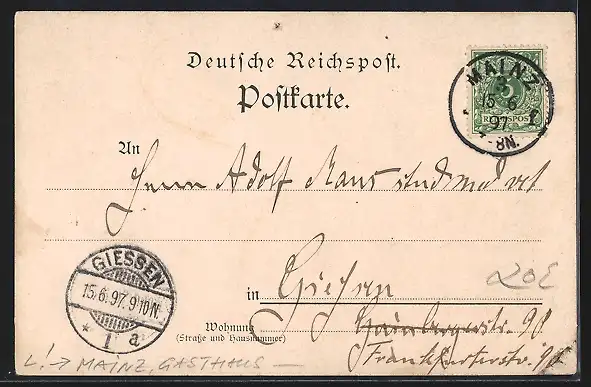 Deutsche Reichspost.
Postkarte.
MAINZ
15 6
97
7-8N.
REICHSPOST
An
Herrn Adolf Maus stud med vet
GIESSEN
15/6.97.9-10N
* 1 a
in Giessen
20E
Wohnung
(Straße und Hausnummer)
str. 90
Frankfurterstr.
L! → MAINZ, GASTHAUS —